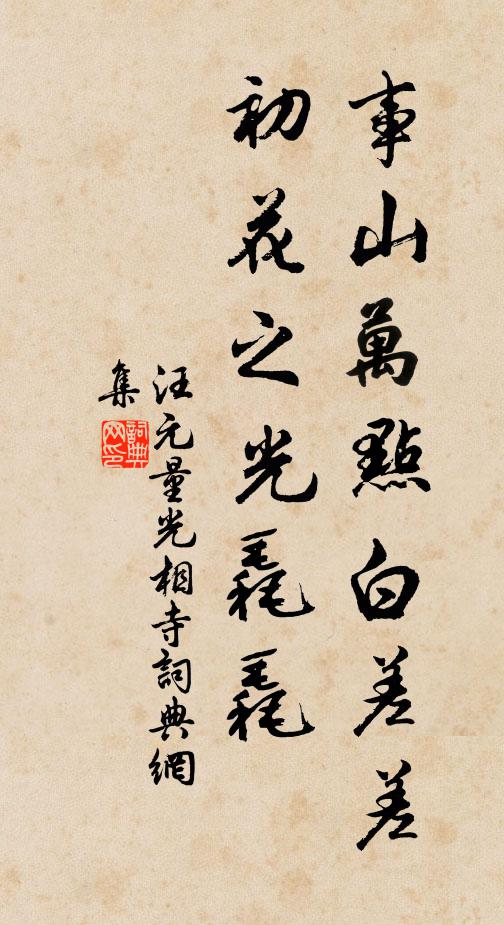 車山萬點白差差
初花之光毳毳
汪元量光相寺詞典網
集
詞典
网印